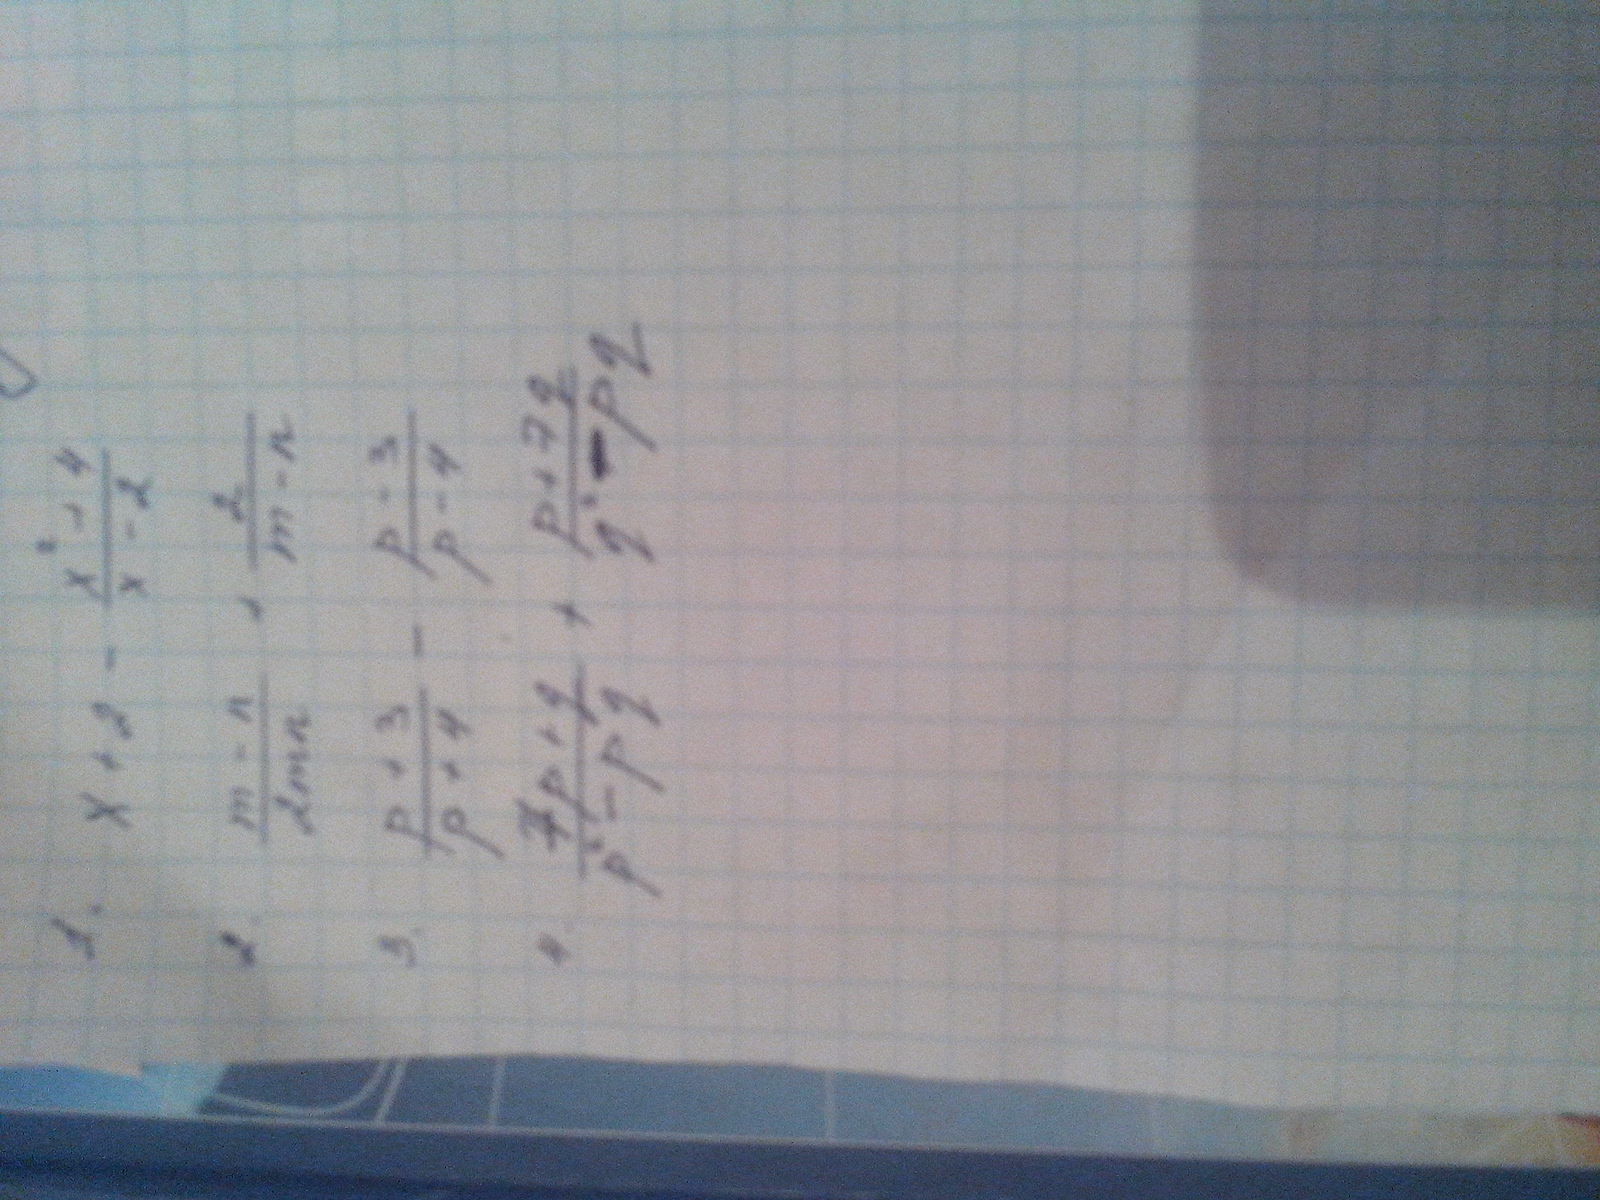 1. x + 2 - (x² + 4)/(x - 2)
2. (m - n)/(2mn) + 2/(m - n)
3. (p + 3)/(p + 4) - (p - 3)/(p - 4)
4. (7p + q)/(p² - pq) + (p + 7q)/(q² - pq)